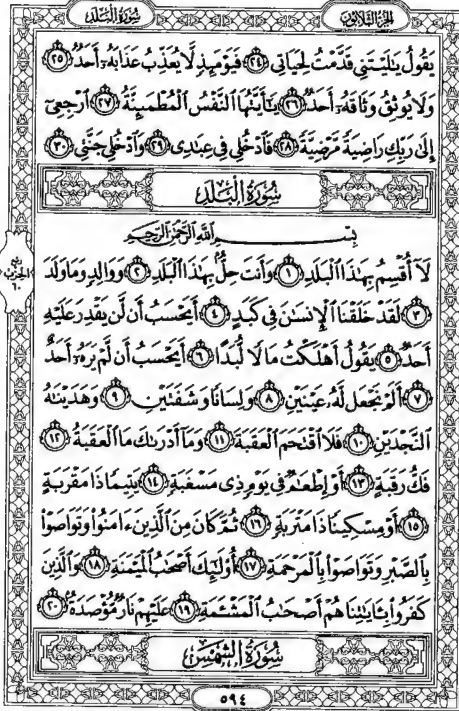 الجزء الثلاثون
سورة البلد
يَقُولُ يَـٰلَيْتَنِى قَدَّمْتُ لِحَيَاتِى ٢٤ فَيَوْمَئِذٍ لَّا يُعَذِّبُ عَذَابَهُۥٓ أَحَدٌ ٢٥
وَلَا يُوثِقُ وَثَاقَهُۥٓ أَحَدٌ ٢٦ يَـٰٓأَيَّتُهَا ٱلنَّفْسُ ٱلْمُطْمَئِنَّةُ ٢٧ ٱرْجِعِىٓ
إِلَىٰ رَبِّكِ رَاضِيَةً مَّرْضِيَّةً ٢٨ فَٱدْخُلِى فِى عِبَـٰدِى ٢٩ وَٱدْخُلِى جَنَّتِى ٣٠
سُورَةُ الْبَلَدِ
بِسْمِ ٱللَّهِ ٱلرَّحْمَـٰنِ ٱلرَّحِيمِ
لَآ أُقْسِمُ بِهَـٰذَا ٱلْبَلَدِ ١ وَأَنتَ حِلٌّۢ بِهَـٰذَا ٱلْبَلَدِ ٢ وَوَالِدٍ وَمَا وَلَدَ
٣ لَقَدْ خَلَقْنَا ٱلْإِنسَـٰنَ فِى كَبَدٍ ٤ أَيَحْسَبُ أَن لَّن يَقْدِرَ عَلَيْهِ
أَحَدٌ ٥ يَقُولُ أَهْلَكْتُ مَالًا لُّبَدًا ٦ أَيَحْسَبُ أَن لَّمْ يَرَهُۥٓ أَحَدٌ
٧ أَلَمْ نَجْعَل لَّهُۥ عَيْنَيْنِ ٨ وَلِسَانًا وَشَفَتَيْنِ ٩ وَهَدَيْنَـٰهُ
ٱلنَّجْدَيْنِ ١٠ فَلَا ٱقْتَحَمَ ٱلْعَقَبَةَ ١١ وَمَآ أَدْرَىٰكَ مَا ٱلْعَقَبَةُ ١٢
فَكُّ رَقَبَةٍ ١٣ أَوْ إِطْعَـٰمٌ فِى يَوْمٍ ذِى مَسْغَبَةٍ ١٤ يَتِيمًا ذَا مَقْرَبَةٍ
١٥ أَوْ مِسْكِينًا ذَا مَتْرَبَةٍ ١٦ ثُمَّ كَانَ مِنَ ٱلَّذِينَ ءَامَنُوا۟ وَتَوَاصَوْا۟
بِٱلصَّبْرِ وَتَوَاصَوْا۟ بِٱلْمَرْحَمَةِ ١٧ أُو۟لَـٰٓئِكَ أَصْحَـٰبُ ٱلْمَيْمَنَةِ ١٨ وَٱلَّذِينَ
كَفَرُوا۟ بِـَٔايَـٰتِنَا هُمْ أَصْحَـٰبُ ٱلْمَشْـَٔمَةِ ١٩ عَلَيْهِمْ نَارٌ مُّؤْصَدَةٌۢ ٢٠
سُورَةُ الشَّمْسِ
٥٩٤